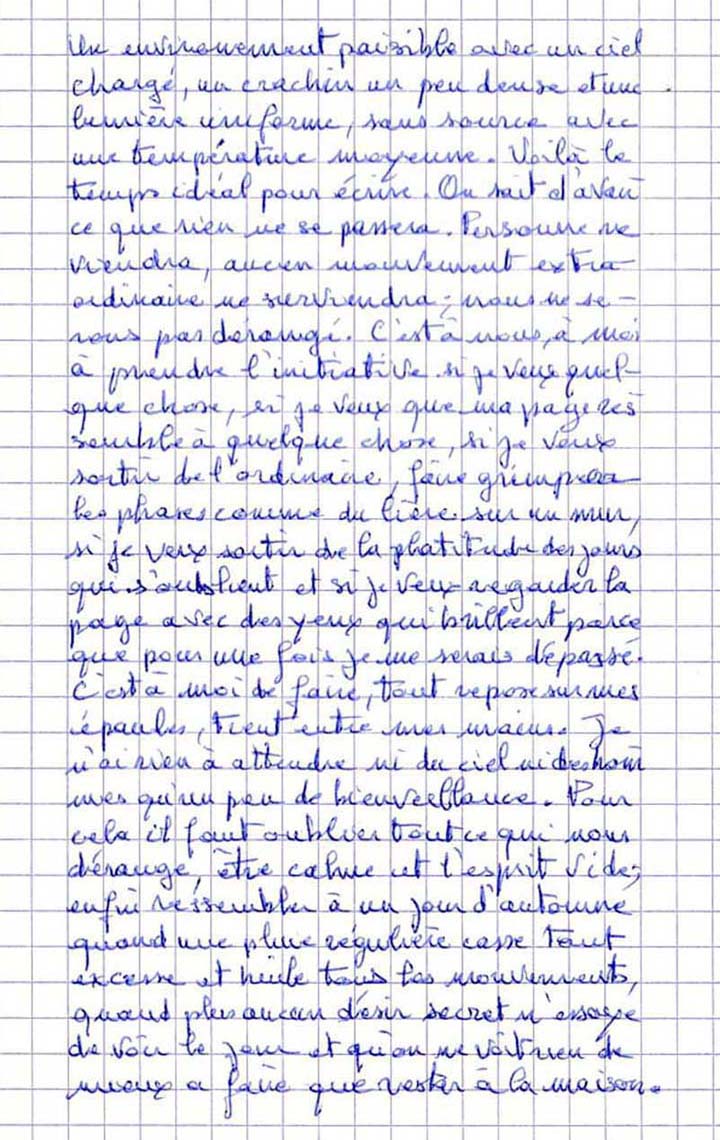 Un environnement paisible avec un ciel
chargé, un crachin un peu dense et une
lumière uniforme, sans source avec
une température moyenne. Voilà le
temps idéal pour écrire. On sait d'avan
ce que rien ne se passera. Personne ne
viendra, aucun mouvement extra-
ordinaire ne surviendra ; nous ne se-
rons pas dérangé. C'est à nous, à moi
à prendre l'initiative si je veux quel-
que chose, si je veux que ma page res
semble à quelque chose, si je veux
sortir de l'ordinaire, faire grimper
les phrases comme du lierre sur un mur,
si je veux sortir de la platitude des jours
qui s'oublient et si je veux regarder la
page avec des yeux qui brillent parce
que pour une fois je me serais dépassé.
C'est à moi de faire, tout repose sur mes
épaules, tient entre mes mains. Je
n'ai rien à attendre ni du ciel ni des hom
mes qu'un peu de bienveillance. Pour
cela il faut oublier tout ce qui nous
dérange, être calme et l'esprit vide,
enfin ressembler à un jour d'automne
quand une pluie régulière casse tout
excesse et huile tous les mouvements,
quand plus aucun désir secret n'essaye
de voir le jour et qu'on ne voit rien de
mieux a faire que rester à la maison.